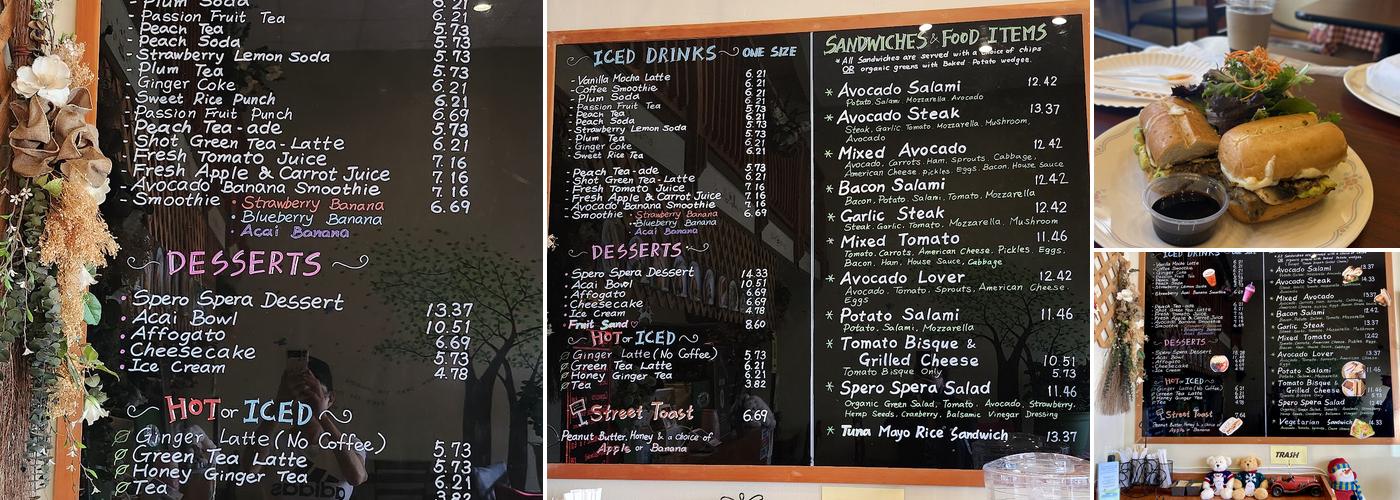 Passion Fruit Tea 6.21
Peach Tea 5.73
Peach Soda 6.21
Strawberry Lemon Soda 5.73
Plum Tea 5.73
Ginger Coke 6.21
Sweet Rice Punch 6.21
Passion Fruit Punch 6.69
Peach Tea-ade 5.73
Shot Green Tea-Latte 6.21
Fresh Tomato Juice 7.16
Fresh Apple & Carrot Juice 7.16
Avocado Banana Smoothie 7.16
Smoothie • Strawberry Banana 6.69
• Blueberry Banana
• Acai Banana
DESSERTS
• Spero Spera Dessert 13.37
• Acai Bowl 10.51
• Affogato 6.69
• Cheesecake 5.73
• Ice Cream 4.78
HOT or ICED
Ginger Latte (No Coffee) 5.73
Green Tea Latte 5.73
Honey Ginger Tea 6.21
Tea 3.82
ICED DRINKS ONE SIZE
- Vanilla Mocha Latte 6.21
- Coffee Smoothie 6.21
- Plum Soda
- Passion Fruit Tea
- Peach Tea
- Peach Soda
- Strawberry Lemon Soda
- Plum Tea
- Ginger Coke
- Sweet Rice Tea
- Peach Tea-ade 5.73
- Shot Green Tea-Latte 6.21
- Fresh Tomato Juice 7.16
- Fresh Apple & Carrot Juice 7.16
- Avocado Banana Smoothie 7.16
- Smoothie • Strawberry Banana 6.69
• Blueberry Banana
• Acai Banana
DESSERTS
• Spero Spera Dessert 14.33
• Acai Bowl 10.51
• Affogato 6.69
• Cheesecake 6.69
• Ice Cream 4.78
• Fruit Sand ♡ 8.60
HOT or ICED
Ginger Latte (No Coffee) 5.73
Green Tea Latte 6.21
Honey Ginger Tea 6.21
Tea 3.82
Street Toast 6.69
Peanut Butter, Honey & a choice of
Apple or Banana
SANDWICHES & FOOD ITEMS
* All Sandwiches are served with a choice of chips
OR organic greens with Baked Potato wedges.
* Avocado Salami 12.42
Potato, Salami, Mozzarella, Avocado
* Avocado Steak 13.37
Steak, Garlic Tomato, Mozzarella, Mushroom,
Avocado
* Mixed Avocado 12.42
Avocado, Carrots, Ham, Sprouts, Cabbage,
American Cheese, Pickles, Eggs, Bacon, House Sauce
* Bacon Salami 12.42
Bacon, Potato, Salami, Tomato, Mozzarella
* Garlic Steak 12.42
Steak, Garlic, Tomato, Mozzarella, Mushroom
* Mixed Tomato 11.46
Tomato, Carrots, American Cheese, Pickles, Eggs,
Bacon, Ham, House Sauce, Cabbage
* Avocado Lover 12.42
Avocado, Tomato, Sprouts, American Cheese,
Eggs
* Potato Salami 11.46
Potato, Salami, Mozzarella
* Tomato Bisque &
Grilled Cheese 10.51
Tomato Bisque Only 5.73
* Spero Spera Salad 11.46
Organic Green Salad, Tomato, Avocado, Strawberry,
Hemp Seeds, Cranberry, Balsamic Vinegar Dressing
* Tuna Mayo Rice Sandwich 13.37
DESSERTS
HOT or ICED
Street Toast 7.64
Avocado Salami
Avocado Steak
Mixed Avocado
Bacon Salami
Garlic Steak
Mixed Tomato
Avocado Lover
Potato Salami
Tomato Bisque &
Grilled Cheese
Spero Spera Salad
Vegetarian Sandwich
TRASH
adidas